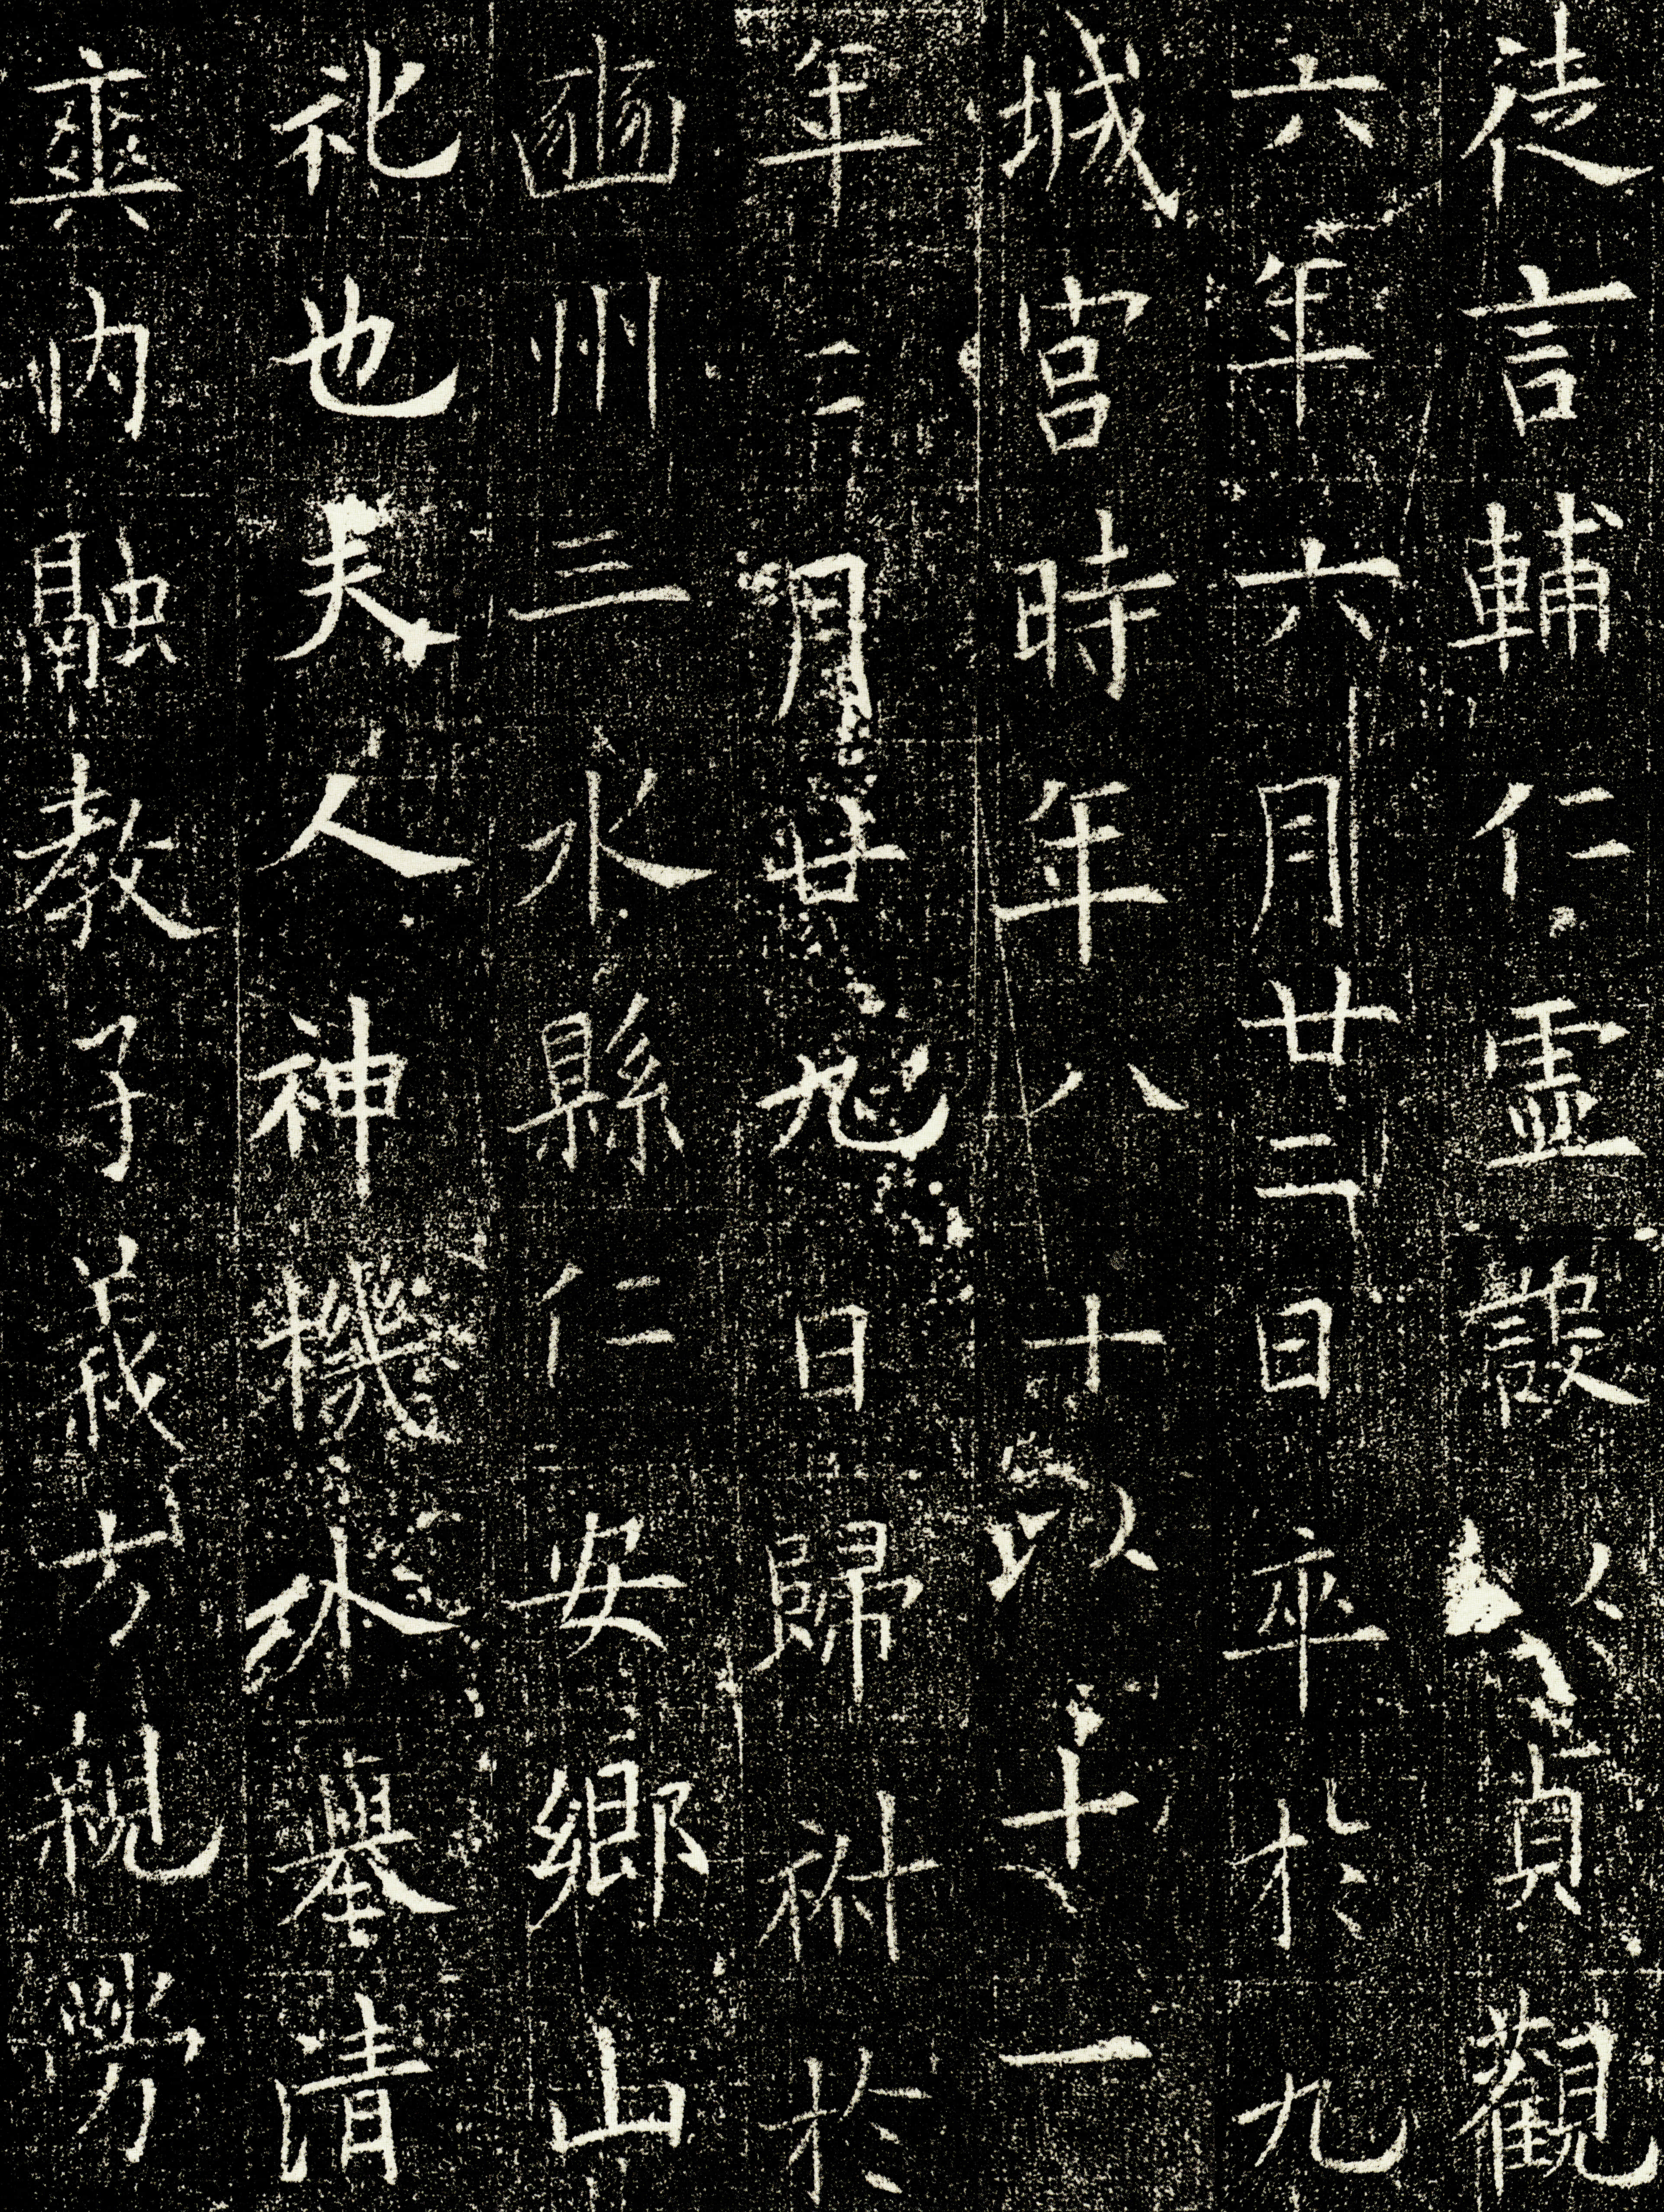 徒言輔仁靈設貞觀
六年六月廿二日卒於九
城宮時年八十以十一
年二月廿九日歸祔於
豳州三水縣仁安鄉山
礼也夫人神機外舉清
爽内融教子義方親勞